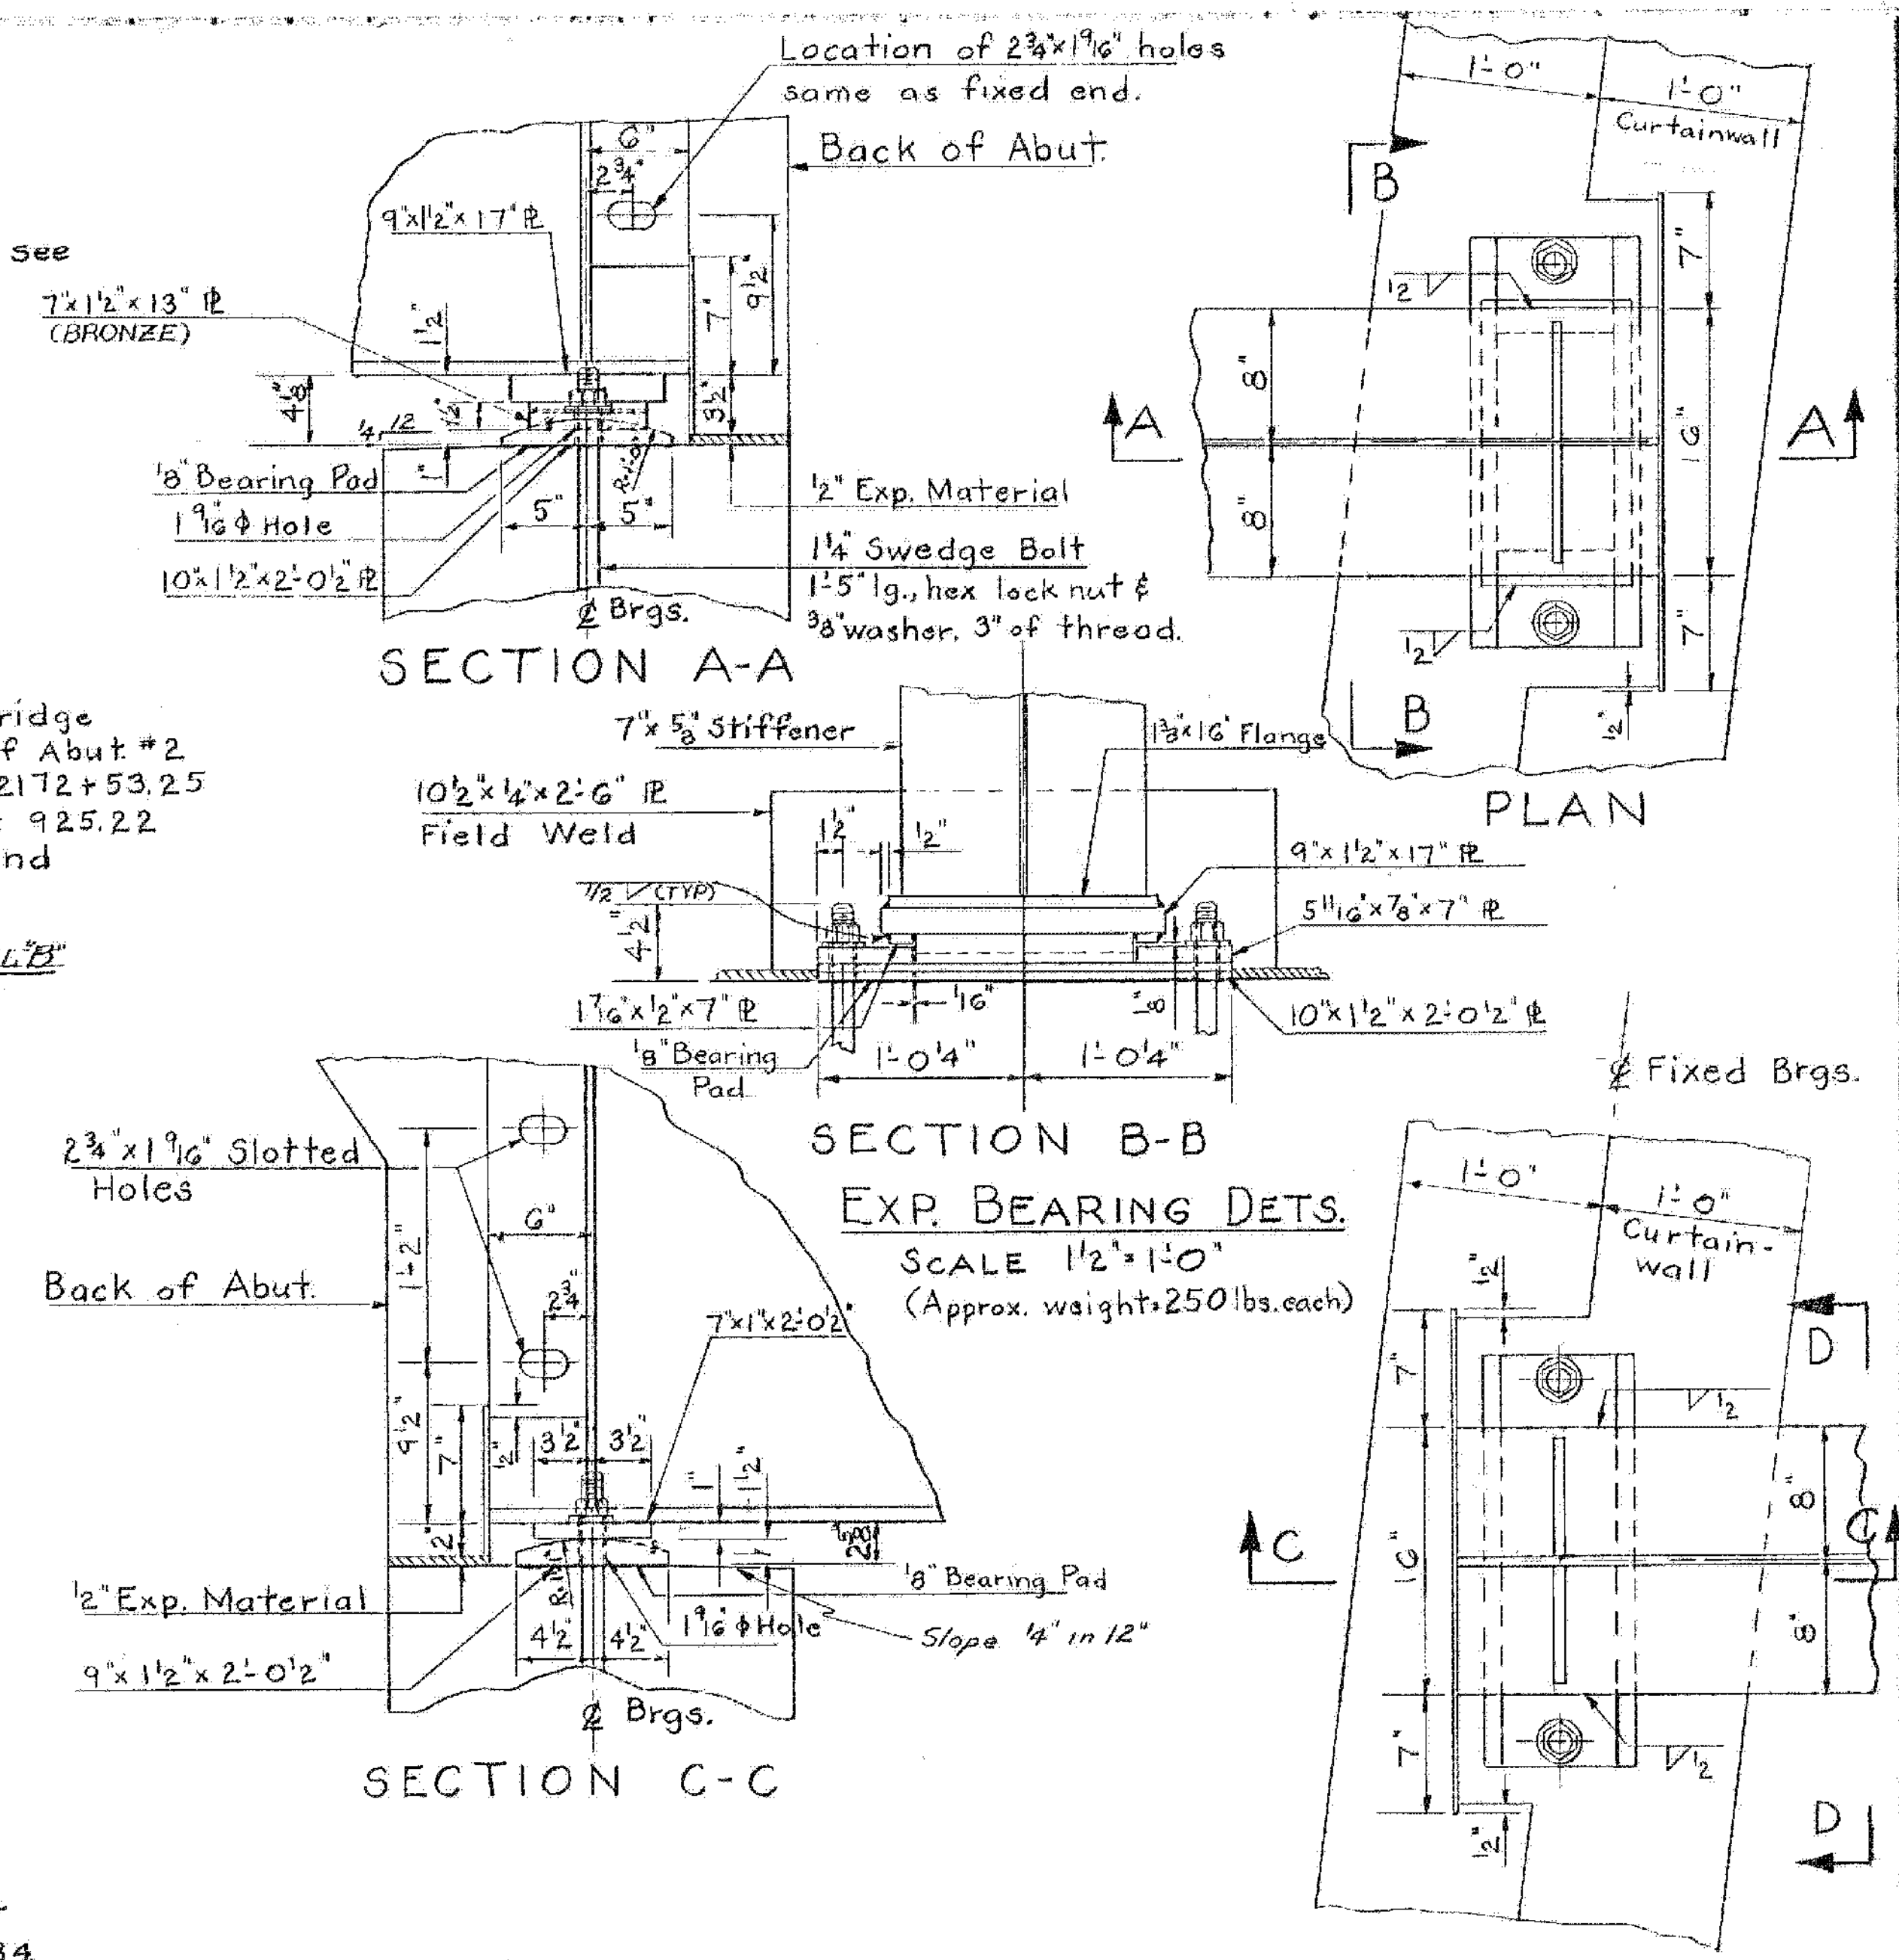 Location of 2¾"x1 9/16" holes
same as fixed end.
Back of Abut.
6"
2¾"
9"x1½"x17" ⅊
see
7"x1½"x13" ⅊
(BRONZE)
1½"
7"
9½"
4⅛"
1½"
3½"
¼, 12
1"
⅛" Bearing Pad
1 9/16 ϕ Hole
10"x1½"x2'-0½" ⅊
5"
5"
R=1'-0"
½" Exp. Material
1¼" Swedge Bolt
1'-5" lg., hex lock nut &
⅜" washer, 3" of thread.
℄ Brgs.
SECTION A-A
1'-0"
1'-0"
Curtainwall
B
7"
½
8"
16"
8"
A
A
7"
½
½"
B
PLAN
ridge
f Abut. #2
2172+53.25
: 925.22
nd
L"B"
7"x⅝" Stiffener
1⅜"x16" Flange
10½"x¼"x2'-6" ⅊
Field Weld
1½"
½"
9"x1½"x17" ⅊
½ (TYP)
5 11/16"x⅞"x7" ⅊
4½"
1 7/16"x½"x7" ⅊
1/16"
⅛"
10"x1½"x2'-0½" ⅊
⅛" Bearing
Pad
1'-0¼"
1'-0¼"
SECTION B-B
EXP. BEARING DETS.
SCALE 1½"=1'-0"
(Approx. weight=250 lbs. each)
℄ Fixed Brgs.
2¾"x1 9/16" Slotted
Holes
1'-2"
6"
Back of Abut.
2¾"
7"x1"x2'-0½"
9½"
7"
½"
3½"
3½"
1"
1½"
2"
2⅝"
½" Exp. Material
⅛" Bearing Pad
1 9/16" ϕ Hole
Slope ¼" in 12"
4½"
4½"
9"x1½"x2'-0½"
℄ Brgs.
SECTION C-C
1'-0"
1'-0"
Curtain-
wall
½"
D
7"
½
8"
16"
C
C
8"
7"
½
½"
D
34